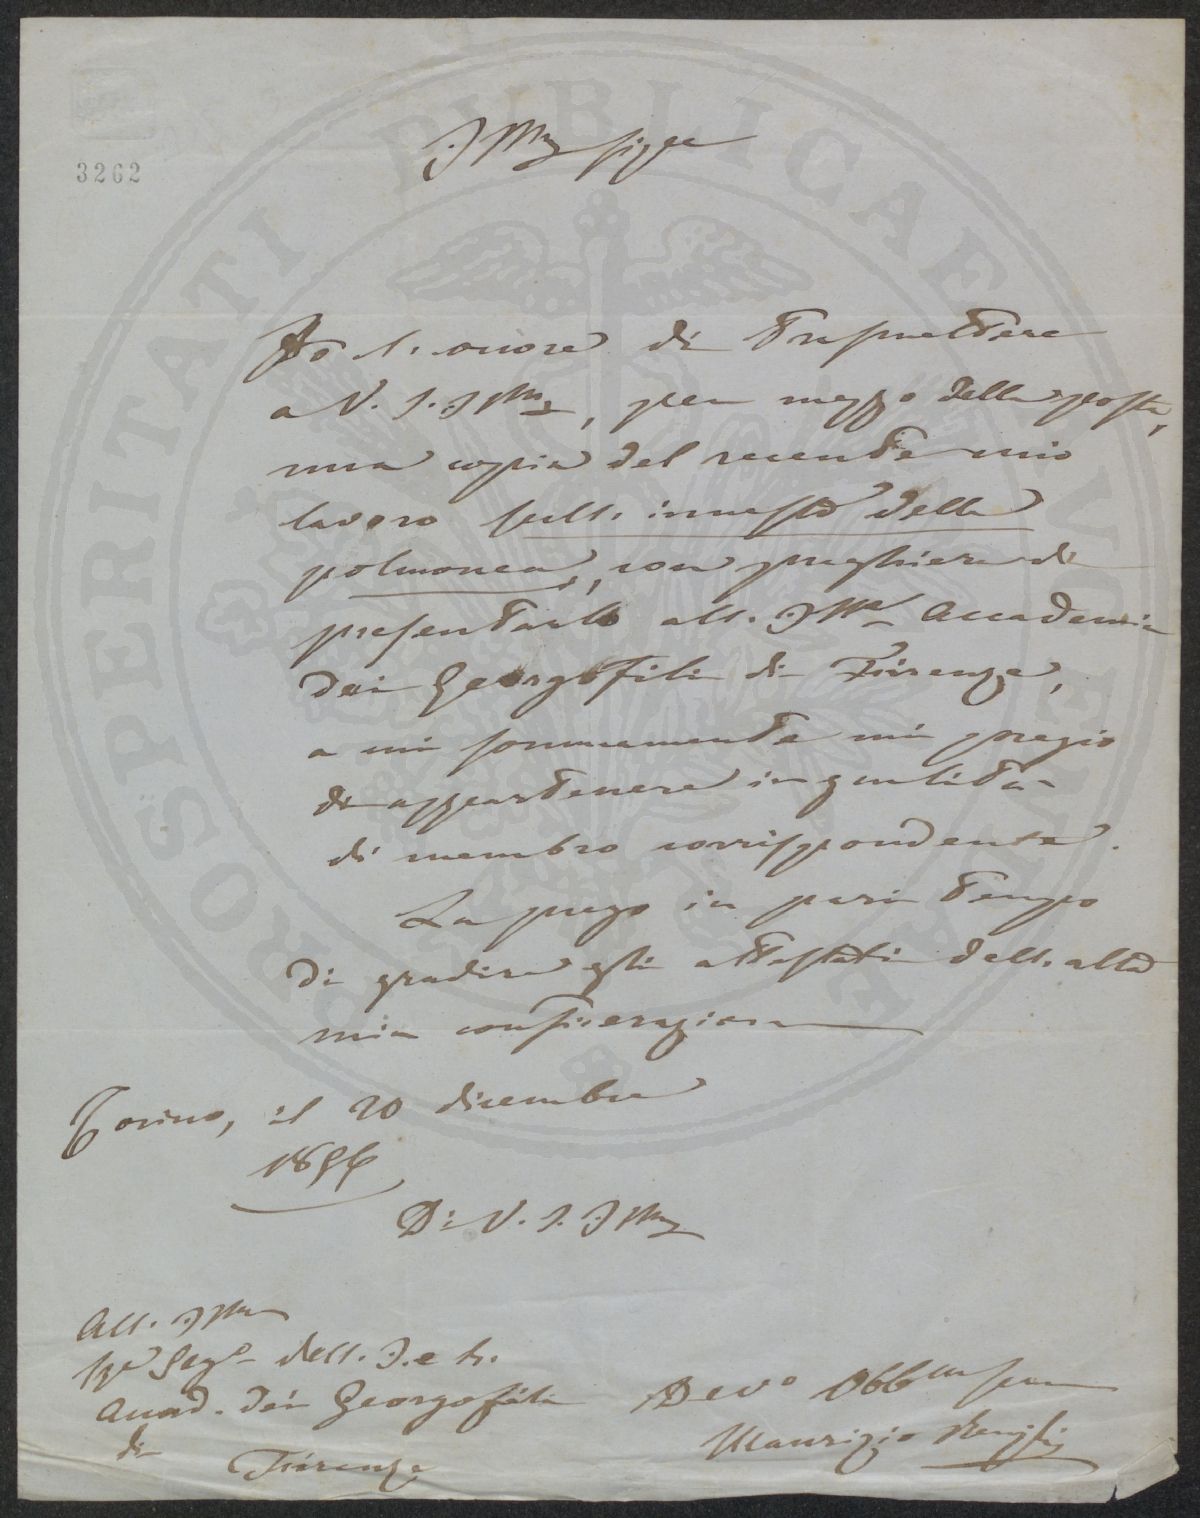 3262
Illmo Sigre
Ho l'onore di trasmettere
a V. S. Illma, per mezzo della posta,
una copia del recente mio
lavoro sull'innesto della
polmonea, con preghiera di
presentarlo all'Illma Accademia
dei Georgofili di Firenze,
a cui sommamente mi pregio
di appartenere in qualità
di membro corrispondente.
La prego in pari tempo
di gradire gli attestati dell'alta
mia considerazione
Torino, il 20 dicembre
1856
Di V. S. Illma
All'Illmo
Sigre Segro dell'I. e R.
Accad. dei Georgofili
di
Firenze
Devo Obbmo
Maurizio
PROSPERITATI PUBLICAE AUGENDAE